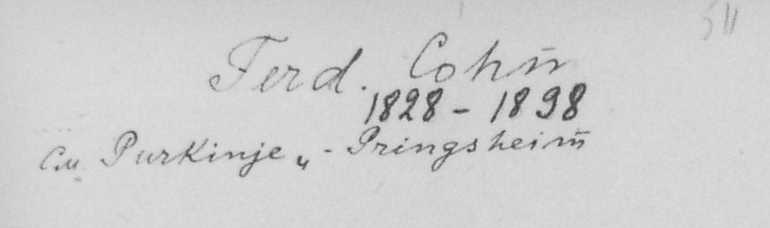 511
Ferd. Cohn
1828 - 1898
см. Purkinje „ - Pringsheim